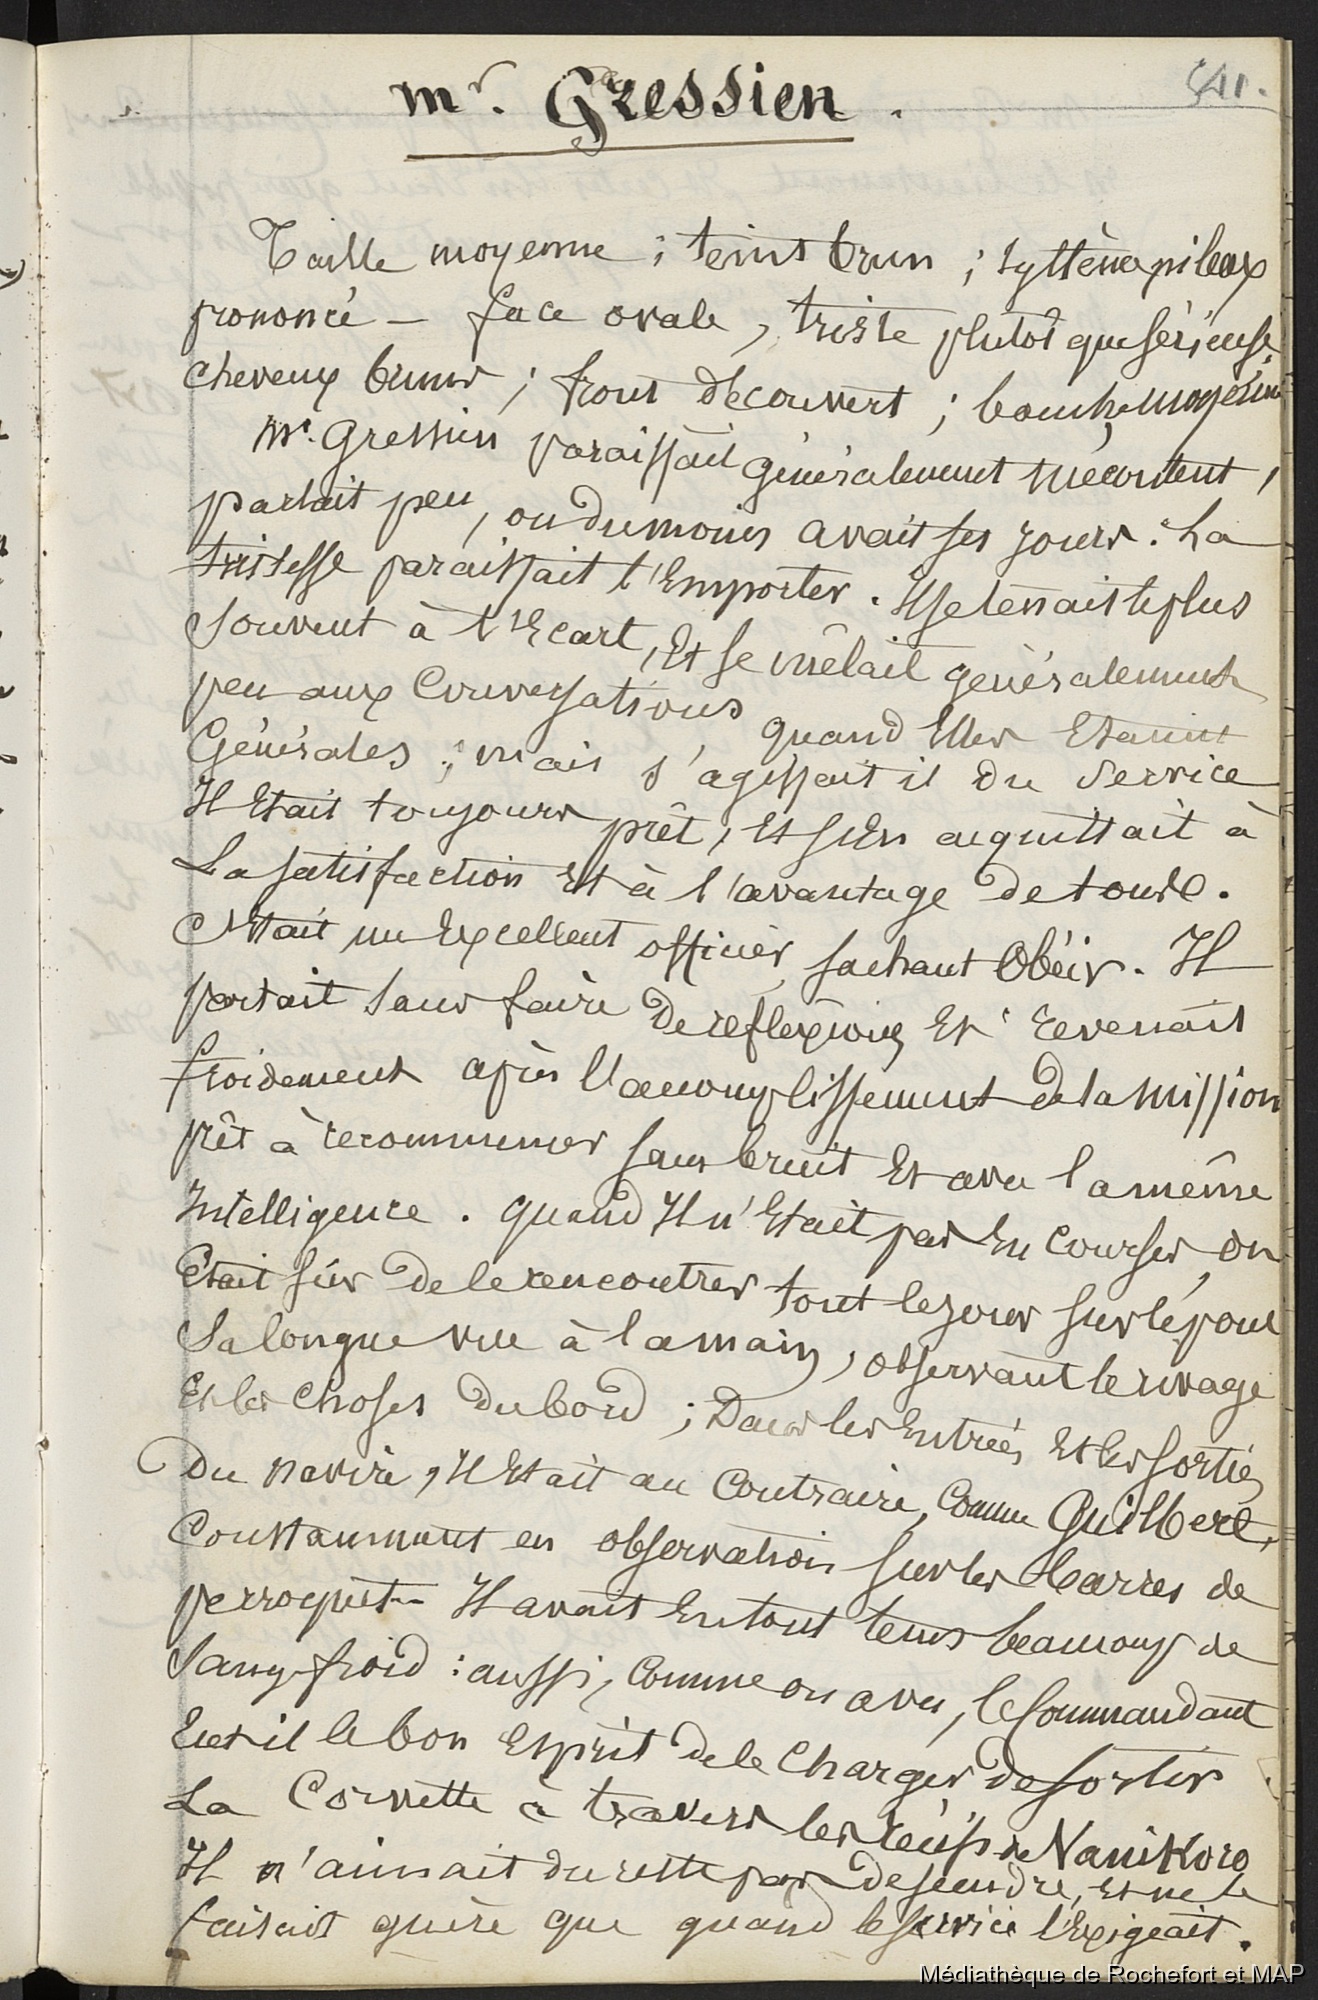 541.
mr. Gressien.
Taille moyenne ; teint brun ; système pileux
prononcé — face ovale, triste plutôt que sérieuse
cheveux bruns ; front découvert ; bouche moyenne
Mr. Gressien paraissait généralement mécontent,
parlait peu, ou du moins avait ses jours. La
tristesse paraissait l'Emporter. Il se tenait le plus
souvent à l'Ecart, Et se mêlait généralement
peu aux Conversations, quand Elles Etaient
Générales ; mais s'agissait il du Service
Il Etait toujours prêt, Et s'En acquittait à
La satisfaction Et à l'avantage de tous.
C'Etait un Excellent officier, sachant Obéir. Il
partait sans faire de reflexions Et revenait
froidement après l'accomplissement de la mission
prêt à recommencer sans bruit Et avec la même
Intelligence. quand Il n'Etait pas En courses, on
Etait sûr de le rencontrer tout le jour sur le pont
Sa longue vue à la main, observant le rivage
Et les choses du bord ; Dans les Entrées Et les sorties
Du navire, Il Etait au Contraire, Comme Guilbert,
Constamment en observation sur les barres de
perroquet — Il avait En tout tems beaucoup de
Sang-froid : aussi, Comme on a vu, le Commandant
Eut il le bon Esprit de le Charger de sortir
La Corvette à travers les récifs de Vanikoro
Il n'aimait du reste pas descendre, Et ne le
faisait guère que quand le service l'Exigeait.
Médiathèque de Rochefort et MAP